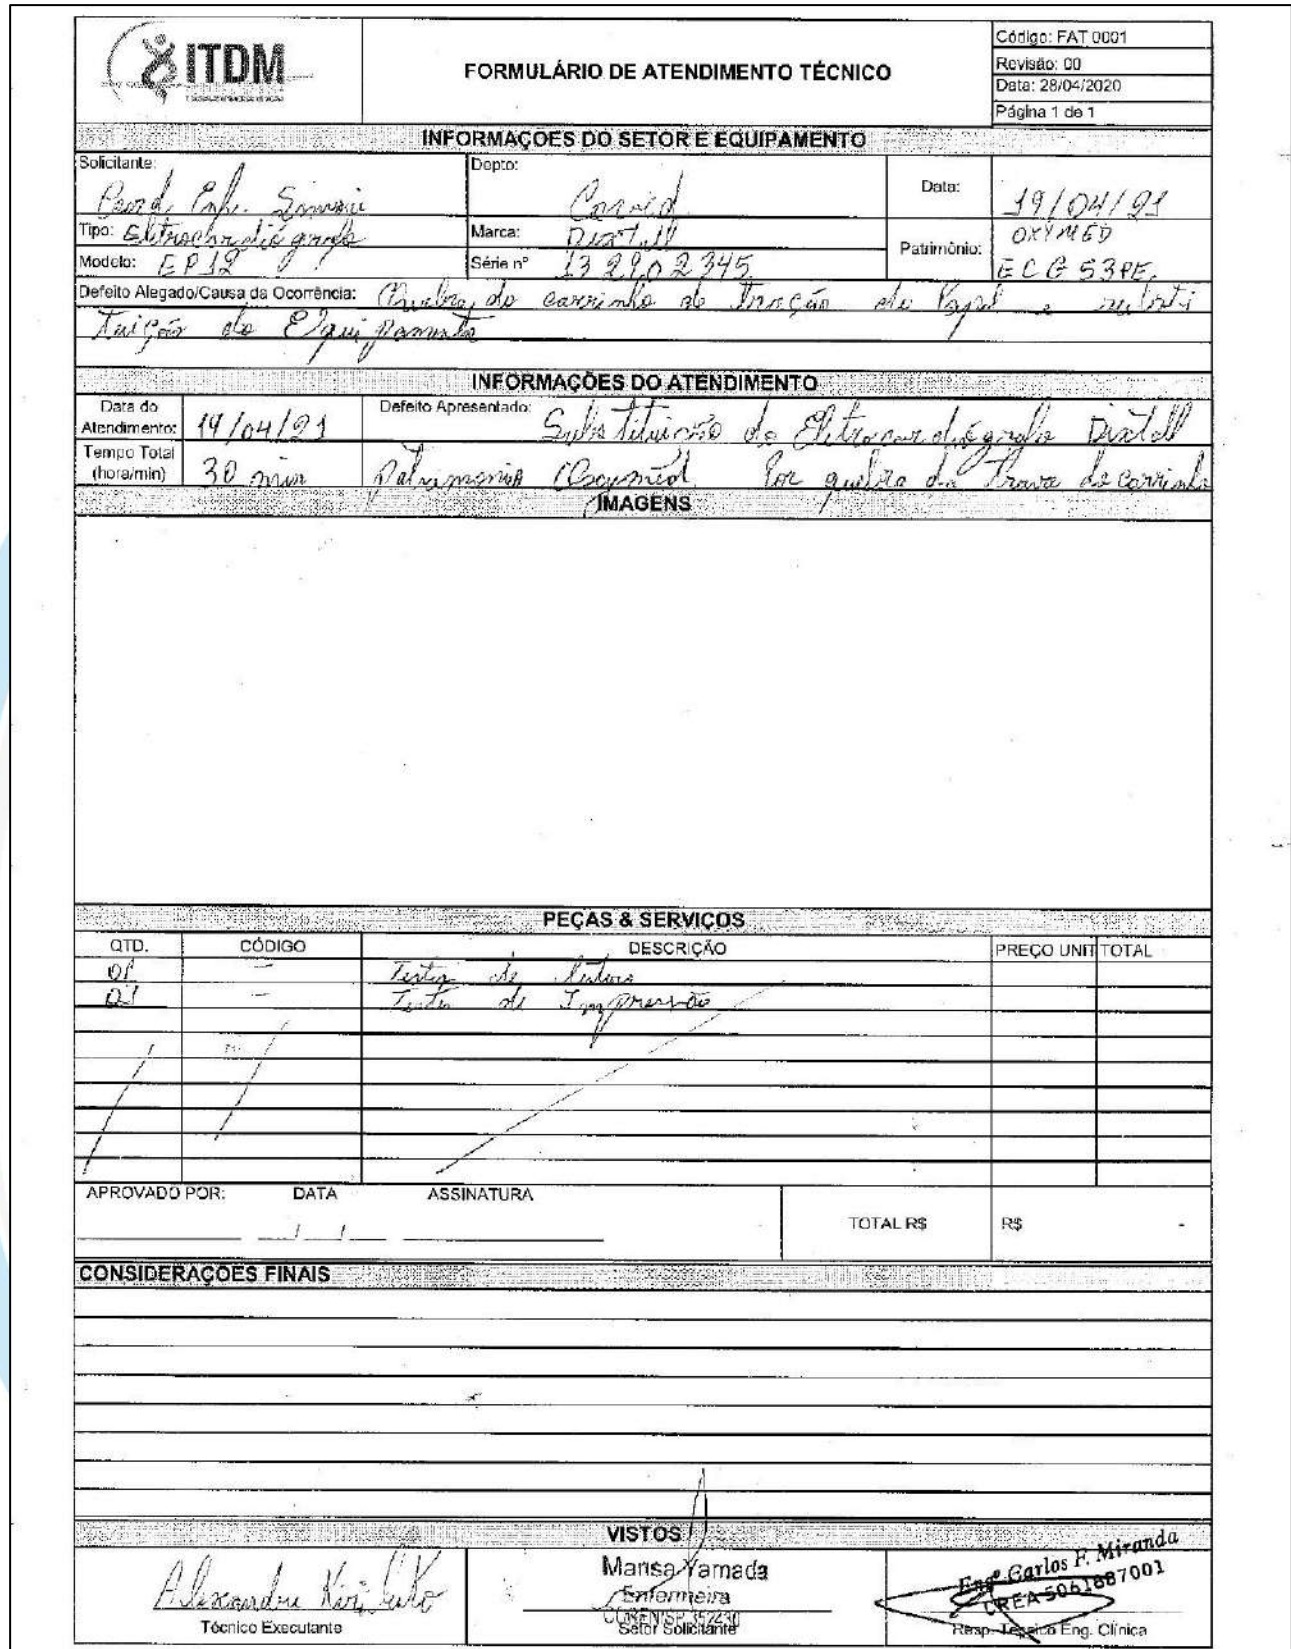 ITDM
FORMULÁRIO DE ATENDIMENTO TÉCNICO
Código: FAT 0001
Revisão: 00
Data: 28/04/2020
Página 1 de 1
INFORMAÇÕES DO SETOR E EQUIPAMENTO
Solicitante: Enf.
Depto:
Data: 19/04/21
Tipo:
Marca: Dixtall
Patrimônio: OXYMED ECG 53PE
Modelo: EP12
Série nº 132902345
Defeito Alegado/Causa da Ocorrência: Quebra do carrinho de Tração do Papel e substi
tuição do Equipamento
INFORMAÇÕES DO ATENDIMENTO
Data do Atendimento: 19/04/21
Defeito Apresentado: Substituição do Eletrocardiografo Dixtall
Tempo Total (hora/min) 30 min
Patrimonio Oxymed Por quebra da Trava do carrinho
IMAGENS
PEÇAS & SERVIÇOS
QTD. CÓDIGO DESCRIÇÃO PREÇO UNIT TOTAL
01 - Testes de
01 - Testes de Impressão
APROVADO POR: DATA ASSINATURA
TOTAL R$ R$ -
CONSIDERAÇÕES FINAIS
VISTOS
Alexandre
Técnico Executante
Marisa Yamada
Enfermeira
COREN/SP 352430
Setor Solicitante
Engº Carlos F. Miranda
CREA 5061887001
Resp. Técnico Eng. Clínica